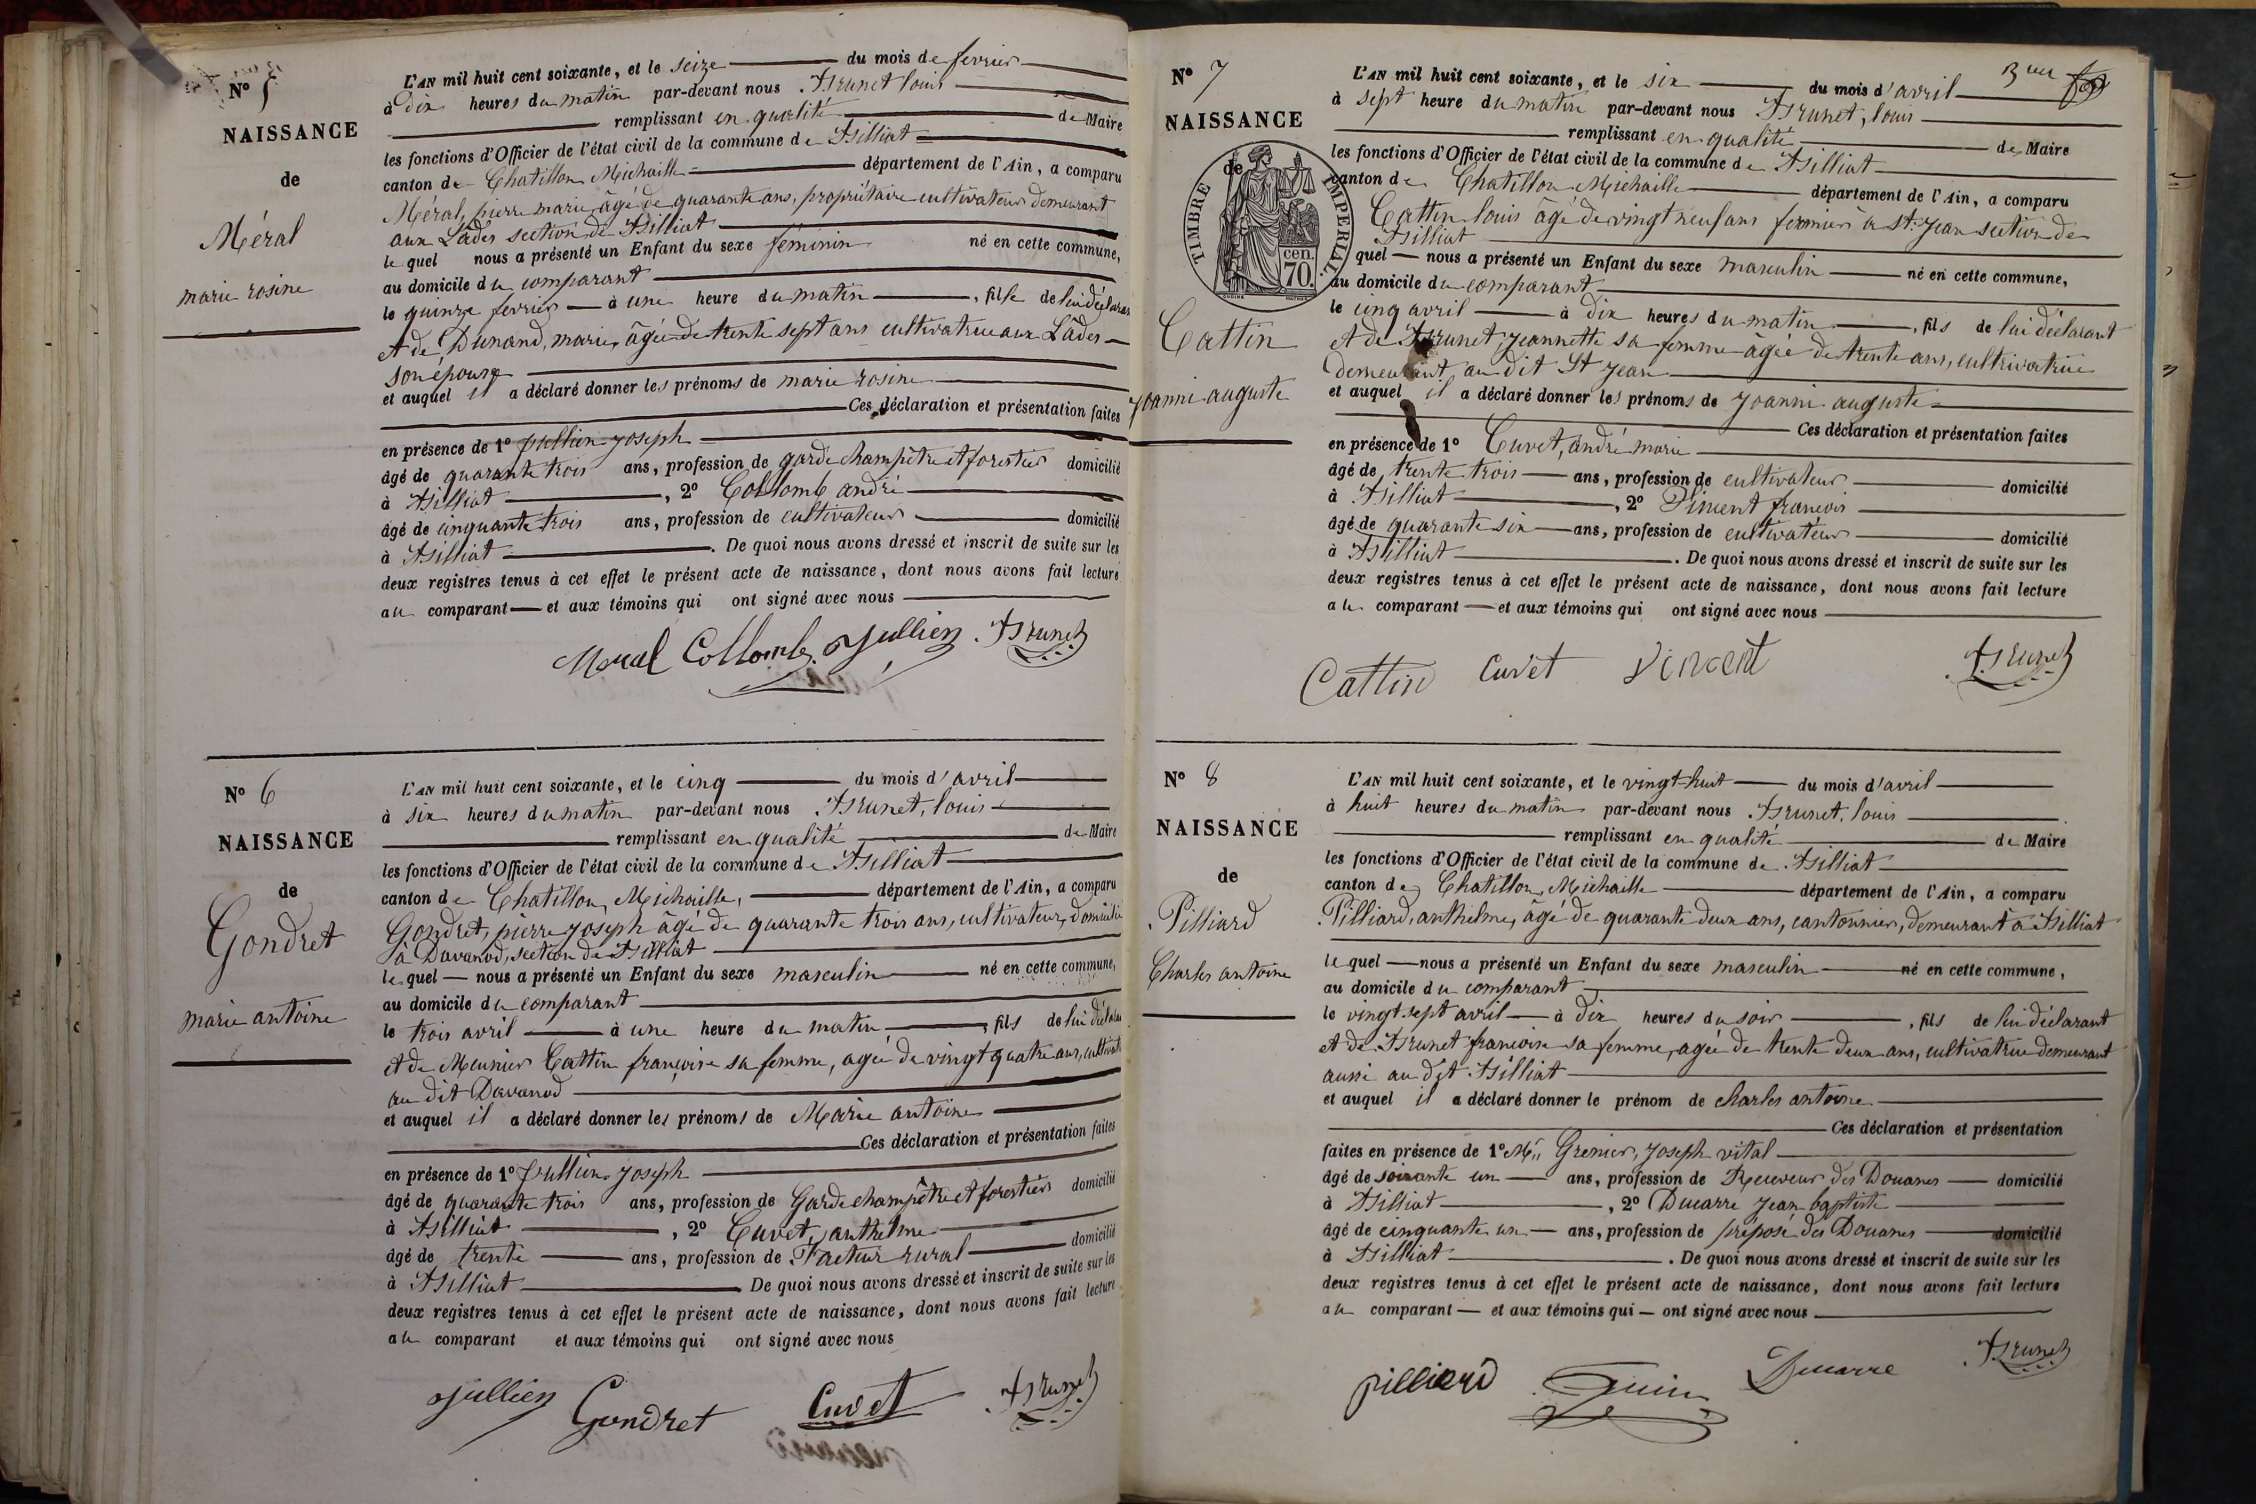 N° 5
NAISSANCE
de
Méral
marie rosine
L'AN mil huit cent soixante, et le seize du mois de fevrier
à dix heures du matin par-devant nous Brunet louis
remplissant en qualité de Maire
les fonctions d'Officier de l'état civil de la commune de Billiat
canton de Chatillon Michaille département de l'Ain, a comparu
Méral, pierre marie, âgé de quarante ans, propriétaire cultivateur demeurant
aux Lâdes section de Billiat
le quel nous a présenté un Enfant du sexe féminin né en cette commune,
au domicile du comparant
le quinze fevrier à une heure du matin, fille de lui déclarant
et de Dunand, marie, âgée de trente sept ans cultivatrice aux Lâdes
son épouse
et auquel il a déclaré donner les prénoms de marie rosine
Ces déclaration et présentation faites
en présence de 1° Jullien joseph
âgé de quarante trois ans, profession de garde champêtre et forestier domicilié
à Billiat, 2° Collomb andré
âgé de cinquante trois ans, profession de cultivateur domicilié
à Billiat. De quoi nous avons dressé et inscrit de suite sur les
deux registres tenus à cet effet le présent acte de naissance, dont nous avons fait lecture
au comparant et aux témoins qui ont signé avec nous
Meral Collomb Jullien Brunet
N° 6
NAISSANCE
de
Gondret
marie antoine
L'AN mil huit cent soixante, et le cinq du mois d'avril
à six heures du matin par-devant nous Brunet, louis
remplissant en qualité de Maire
les fonctions d'Officier de l'état civil de la commune de Billiat
canton de Chatillon, Michaille, département de l'Ain, a comparu
Gondret, pierre joseph âgé de quarante trois ans, cultivateur, domicilié
à Davanod, section de Billiat
le quel nous a présenté un Enfant du sexe masculin né en cette commune,
au domicile du comparant
le trois avril à une heure du matin, fils de lui déclarant
et de Meunier Cattin françoise sa femme, agée de vingt quatre ans, cultivatrice
au dit Davanod
et auquel il a déclaré donner les prénoms de Marie antoine
Ces déclaration et présentation faites
en présence de 1° Jullien joseph
âgé de quarante trois ans, profession de Garde champêtre et forestier domicilié
à Billiat, 2° Cuvet, anthelme
âgé de trente ans, profession de Facteur rural domicilié
à Billiat De quoi nous avons dressé et inscrit de suite sur les
deux registres tenus à cet effet le présent acte de naissance, dont nous avons fait lecture
au comparant et aux témoins qui ont signé avec nous
Jullien Gondret Cuvet Brunet
3me
N° 7
NAISSANCE
de
TIMBRE IMPERIAL
70 cen.
Cattin
joanni auguste
L'AN mil huit cent soixante, et le six du mois d'avril
à sept heure du matin par-devant nous Brunet, louis
remplissant en qualité de Maire
les fonctions d'Officier de l'état civil de la commune de Billiat
canton de Chatillon Michaille département de l'Ain, a comparu
Cattin louis âgé de vingt neuf ans fermier à St jean section de
Billiat
quel nous a présenté un Enfant du sexe masculin né en cette commune,
au domicile du comparant
le cinq avril à dix heures du matin, fils de lui déclarant
et de Brunet, jeannette sa femme âgée de trente ans, cultivatrice
demeurant au dit St jean
et auquel il a déclaré donner les prénoms de joanni auguste
Ces déclaration et présentation faites
en présence de 1° Cuvet, andré marie
âgé de trente trois ans, profession de cultivateur domicilié
à Billiat, 2° françois
âgé de quarante six ans, profession de cultivateur domicilié
à Billiat. De quoi nous avons dressé et inscrit de suite sur les
deux registres tenus à cet effet le présent acte de naissance, dont nous avons fait lecture
au comparant et aux témoins qui ont signé avec nous
Cattin Cuvet Vincent Brunet
N° 8
NAISSANCE
de
Pilliard
Charles antoine
L'AN mil huit cent soixante, et le vingt-huit du mois d'avril
à huit heures du matin par-devant nous Brunet, louis
remplissant en qualité de Maire
les fonctions d'Officier de l'état civil de la commune de Billiat
canton de Chatillon, Michaille département de l'Ain, a comparu
Pilliard, anthelme, âgé de quarante deux ans, cantonnier, demeurant à Billiat
le quel nous a présenté un Enfant du sexe masculin né en cette commune,
au domicile du comparant
le vingt sept avril à dix heures du soir, fils de lui déclarant
et de Brunet françoise sa femme, agée de trente deux ans, cultivatrice demeurant
aussi au dit Billiat
et auquel il a déclaré donner le prénom de charles antoine
Ces déclaration et présentation
faites en présence de 1° Mr Grenier, joseph vital
âgé de soixante un ans, profession de Receveur des Douanes domicilié
à Billiat, 2° Ducarre jean baptiste
âgé de cinquante un ans, profession de préposé des Douanes domicilié
à Billiat. De quoi nous avons dressé et inscrit de suite sur les
deux registres tenus à cet effet le présent acte de naissance, dont nous avons fait lecture
au comparant et aux témoins qui ont signé avec nous
pilliard Ducarre Brunet